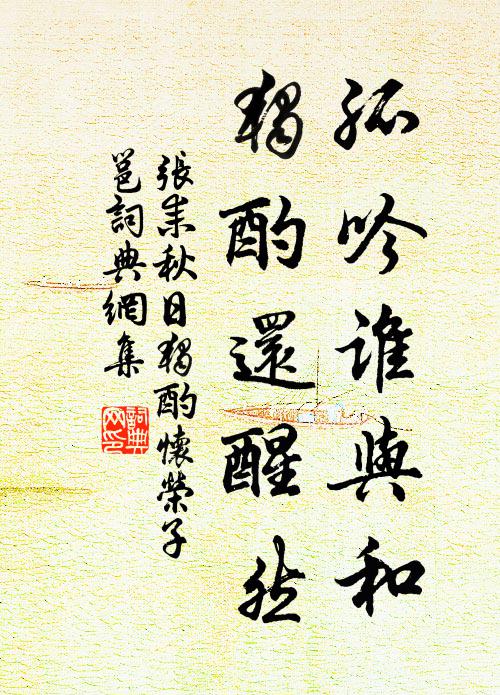 孤吟誰與和
獨酌還醒然
張耒秋日獨酌懷榮子
邕詞典網集
詞典
网印